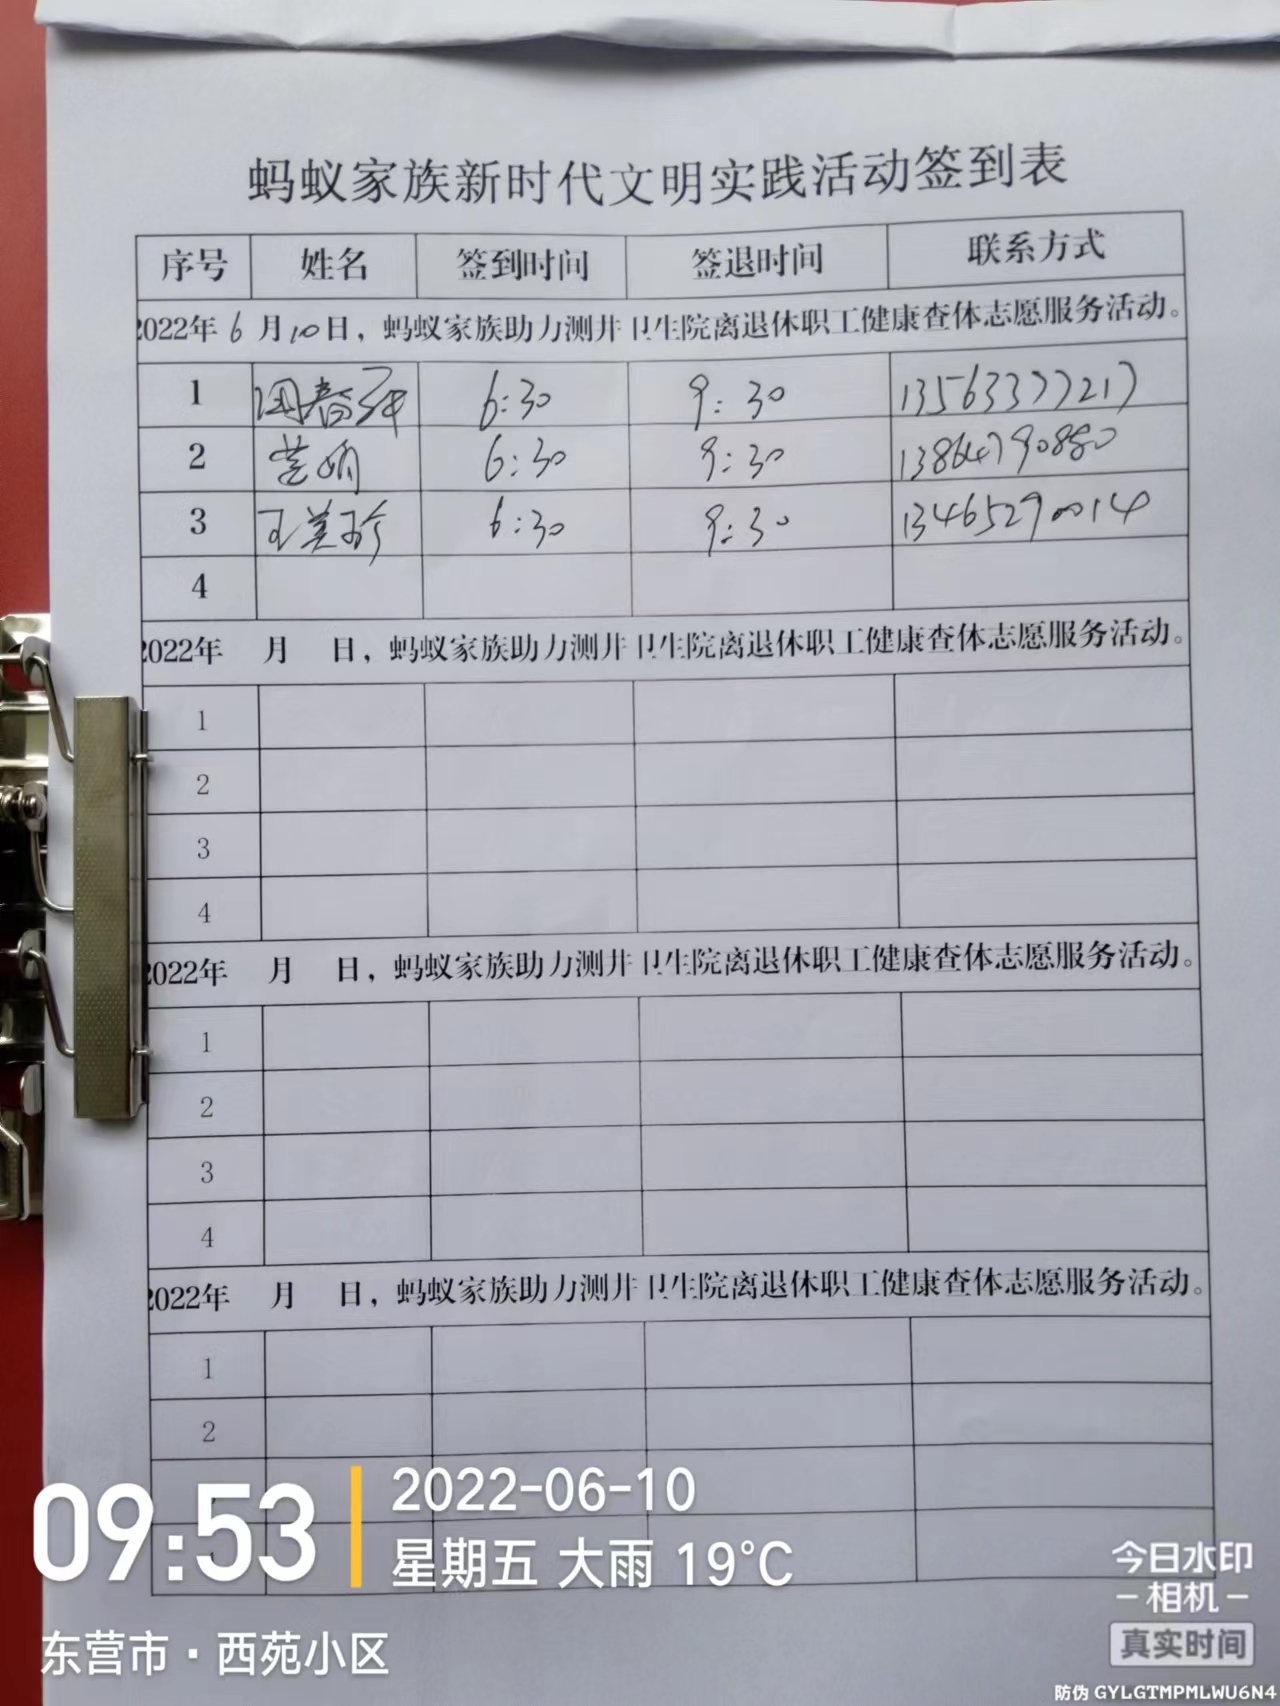 蚂蚁家族新时代文明实践活动签到表
序号 姓名 签到时间 签退时间 联系方式
2022年6月10日，蚂蚁家族助力测井卫生院离退休职工健康查体志愿服务活动。
1 6:30 9:30 13563377217
2 6:30 9:30 13864790880
3 王美珍 6:30 9:30 13465290014
4
2022年 月 日，蚂蚁家族助力测井卫生院离退休职工健康查体志愿服务活动。
1
2
3
4
2022年 月 日，蚂蚁家族助力测井卫生院离退休职工健康查体志愿服务活动。
1
2
3
4
2022年 月 日，蚂蚁家族助力测井卫生院离退休职工健康查体志愿服务活动。
1
2
09:53
2022-06-10
星期五 大雨 19°C
东营市·西苑小区
今日水印
-相机-
真实时间
防伪 GYLGTMPMLWU6N4